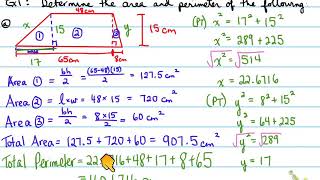 Ex1: Determine the area and perimeter of the following.
a
48cm
x
15
y
15 cm
① ② ③
17 65cm 8cm
Area ① = bh/2 = (65-48)(15)/2 = 127.5 cm²
Area ② = l×w = 48×15 = 720 cm²
Area ③ = bh/2 = 8×15/2 = 60 cm²
Total Area = 127.5 + 720 + 60 = 907.5 cm²
Total Perimeter = 22. 16+48+17+8+65
(PT) x² = 17² + 15²
x² = 289 + 225
√x² = √514
x = 22.6716
(PT) y² = 8² + 15²
y² = 64 + 225
√y² = √289
y = 17